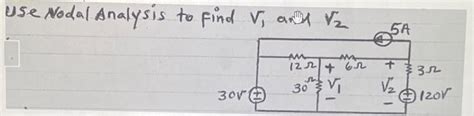 Use Nodal Analysis to find V1 and V2
5A
12Ω + 6Ω + 3Ω
30V 30Ω V1 V2 120V
- -